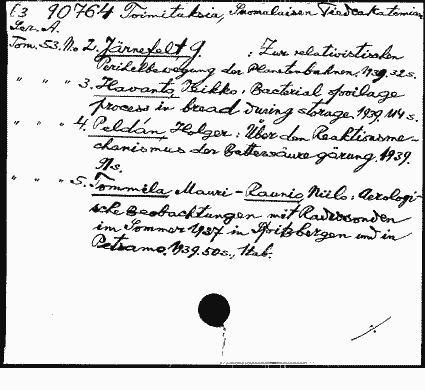 E3 90764 Toimituksia, Suomalaisen Tiedeakatemian
Ser. A.
Tom. 53. No 2. Järnefelt, G. : Zur relativistischen
Perihelbewegung der Planetenbahnen. 1939. 32 s.
" " " 3. Havanto, Veikko: Bacterial spoilage
process in bread during storage. 1939. 114 s.
" " " 4. Peldán, Holger: Über den Reaktionsme-
chanismus der Buttersäure gärung. 1939.
91 s.
" " " 5. Tommila, Mauri - Raunio, Niilo: Aerologi-
sche Beobachtungen mit Radiosonden
im Sommer 1937 in Spitzbergen und in
Petsamo. 1939. 50 s., 1 tab.